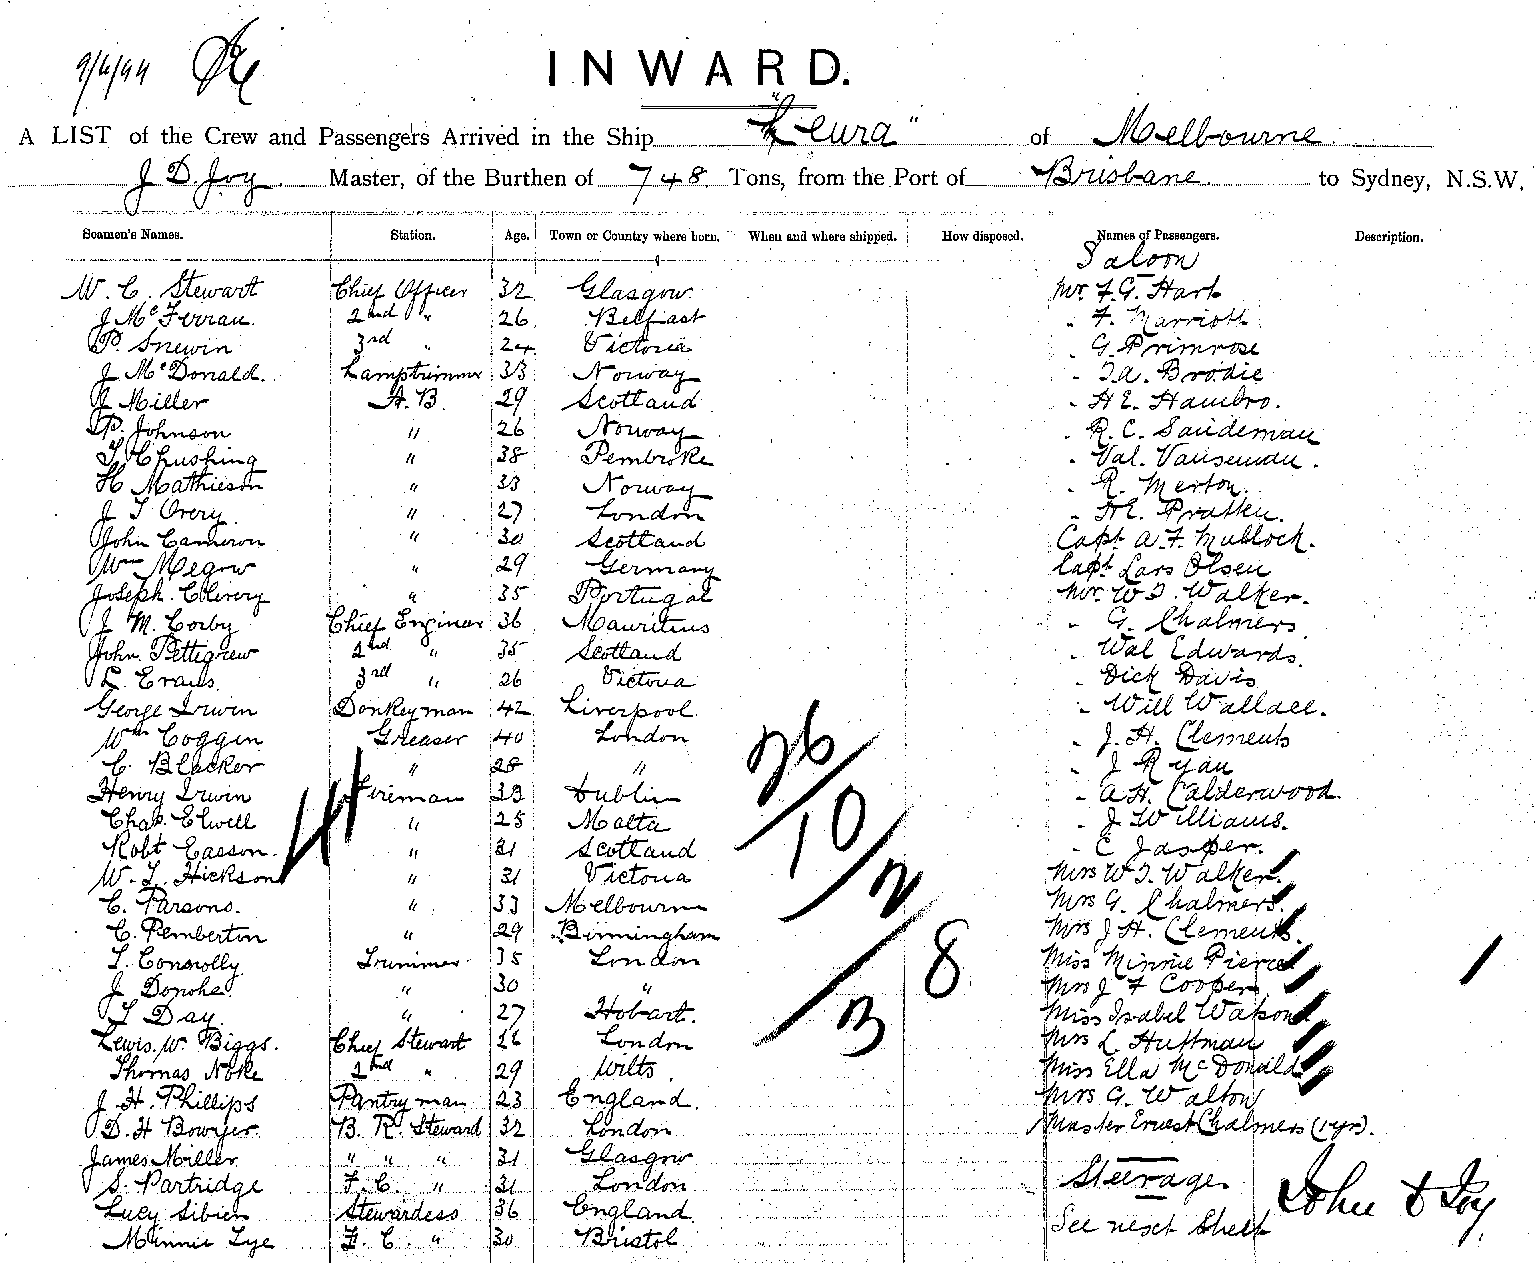 9/4/94
INWARD.
A LIST of the Crew and Passengers Arrived in the Ship "Leura" of Melbourne
J D Joy Master, of the Burthen of 748 Tons, from the Port of Brisbane to Sydney, N.S.W.
Seamen's Names. Station. Age. Town or Country where born. When and where shipped. How disposed. Names of Passengers. Description.
Saloon
W. C. Stewart Chief Officer 32 Glasgow Mr. F. G. Hart
J McFerran 2nd " 26 Belfast " F. Marriott
P. Snewin 3rd " 24 Victoria " G. Primrose
J McDonald. Lamptrimmer 33 Norway " T. A. Brodie
J Miller A. B. 29 Scotland " H E. Hambro.
P. Johnson " 26 Norway " R. C. Sandeman
T Chushing " 38 Pembroke " Val. Vanseman.
H Mathieson " 33 Norway " R. Merton.
J T Overy " 27 London " H. E. Pratten.
John Cameron " 30 Scotland Capt. A. F. Mullock.
Wm Megow " 29 Germany Capt. Lars Olsen
Joseph " 35 Portugal Mr. W. T. Walker.
J M. Corby Chief Engineer 36 Mauritius " G. Chalmers
John Pettigrew 2nd " 35 Scotland " Wal Edwards.
L. Evans. 3rd " 26 Victoria " Dick Davis
George Irwin Donkeyman 42 Liverpool " Will Wallace.
Wm Coggin Greaser 40 London " J. H. Clements
C. Blacker " 28 " " J Ryan
Henry Irwin Fireman 33 Dublin " A H. Calderwood.
Chas. Elwell " 25 Malta " J Williams.
Robt Easson. " 31 Scotland " C Jasper.
W. T. Hickson " 31 Victoria Mrs W. T. Walker.
C. Parsons. " 33 Melbourne Mrs G. Chalmers.
C. Pemberton " 29 Birmingham Mrs J H. Clements.
T. Connolly Trimmer 35 London Miss Minnie Pierce
J Donohe " 30 " Mrs J F Cooper
T Day " 27 Hobart. Miss Isabel Watson
Lewis. W. Biggs. Chief Stewart 26 London Mrs L. Huttman
Thomas Noke 2nd " 29 Wilts Miss Ella McDonald
J. H. Phillips Pantryman 23 England. Mrs G. Walton
D. H Bowyer. B. R. Steward 32 London Master Ernest Chalmers (1 yr).
James Miller " " " 31 Glasgow
S. Partridge F. C. " 31 London Steerage
Lucy Sibien Stewardess 36 England
Minnie Lye F. C. " 30 Bristol See next Sheet
John D Joy
41
26
10
2
3
8